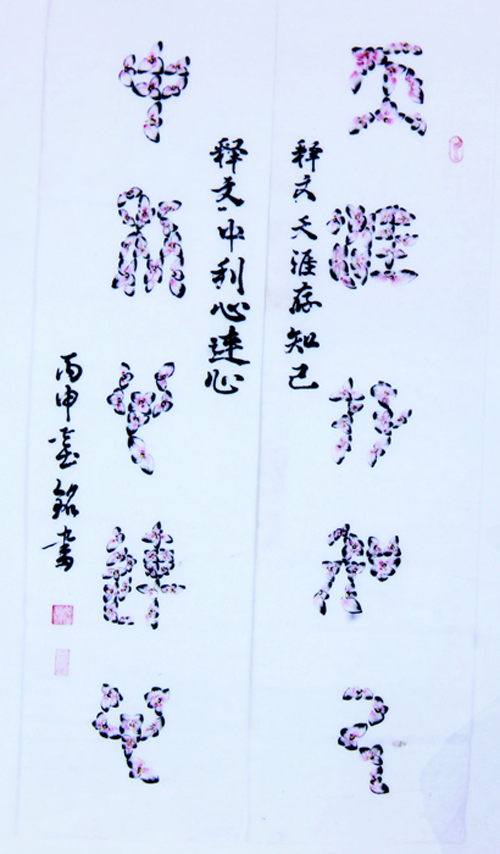 天涯存知己
释文天涯存知己
释文中利心連心
中利心連心
丙申 铭书